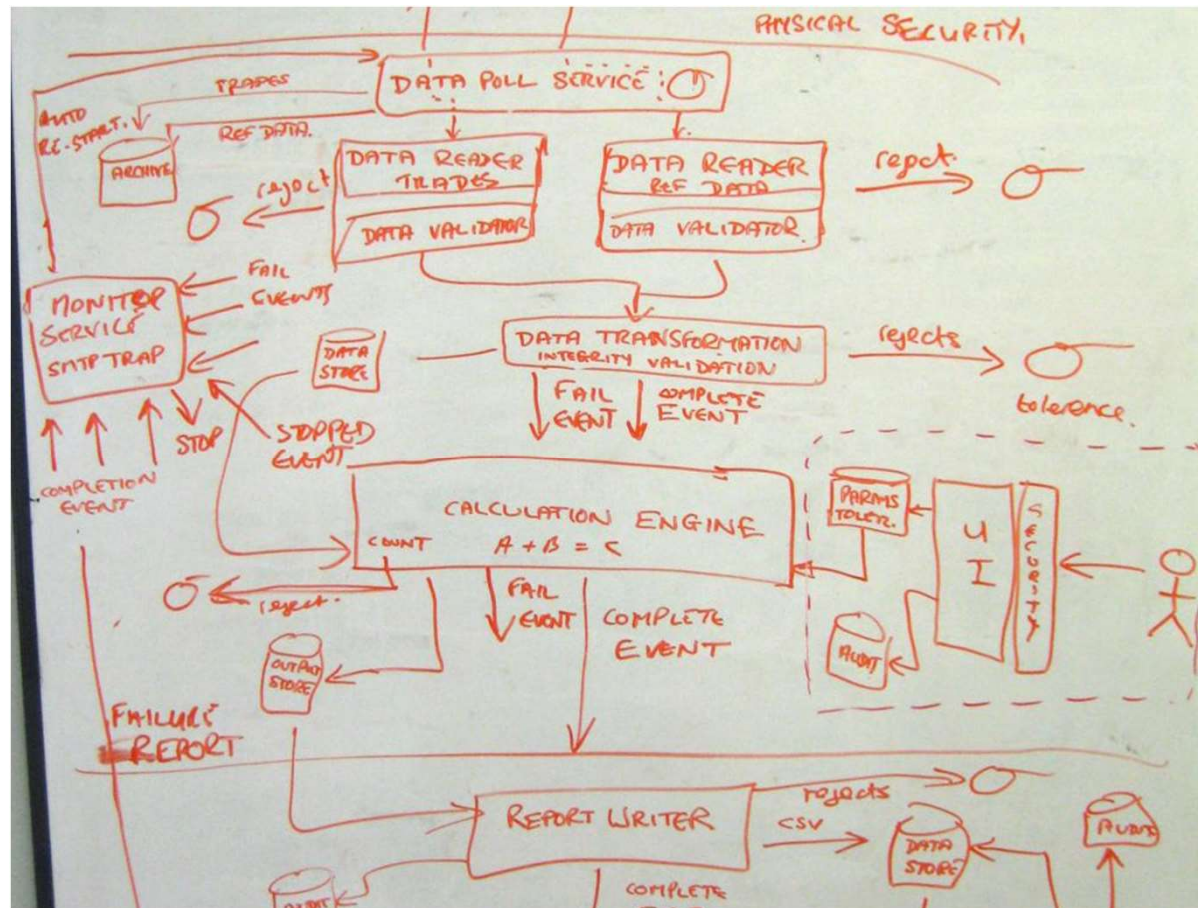 PHYSICAL SECURITY,
DATA POLL SERVICE
TRADES
AUTO
RE-START.
REF DATA.
ARCHIVE
DATA READER
TRADES
DATA VALIDATOR
DATA READER
REF DATA
DATA VALIDATOR.
reject
reject.
FAIL
EVENTS
MONITOR
SERVICE
SMTP TRAP
DATA
STORE
DATA TRANSFORMATION
INTEGRITY VALIDATION
rejects
tolerence.
FAIL
EVENT
COMPLETE
EVENT
STOP
STOPPED
EVENT
COMPLETION
EVENT
CALCULATION ENGINE
COUNT
A + B = C
PARAMS
TOLER.
UI
SECURITY
AUDIT
reject.
FAIL
EVENT
COMPLETE
EVENT
OUTPUT
STORE
FAILURE
REPORT
REPORT WRITER
rejects
CSV
DATA
STORE
AUDIT
AUDIT
COMPLETE